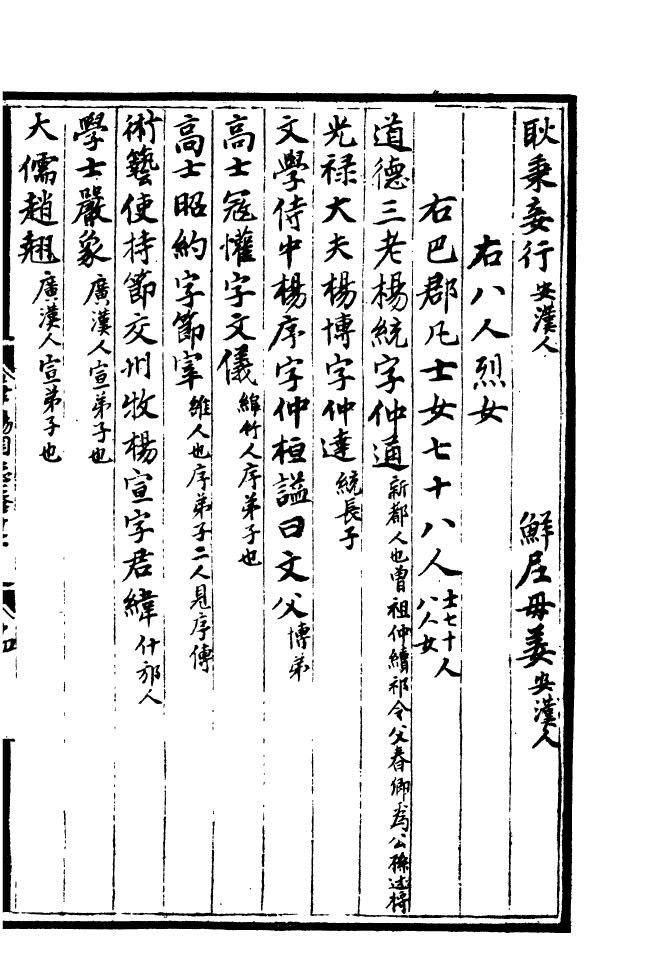 耿秉妾行 安漢人 鮮尼母姜 安漢人
右八人烈女
右巴郡凡士女七十八人 士七十人八人女
道德三老楊統字仲通 新都人也曾祖仲續祁令父春卿為公孫述將
光禄大夫楊博字仲達 統長子
文學侍中楊序字仲桓謚曰文父 博弟
高士冦懽字文儀 綿竹人序弟子也
高士昭約字節宰 雒人也序弟子二人見序傳
術藝使持節交州牧楊宣字君緯 什邡人
學士嚴象 廣漢人宣弟子也
大儒趙翹 廣漢人宣弟子也